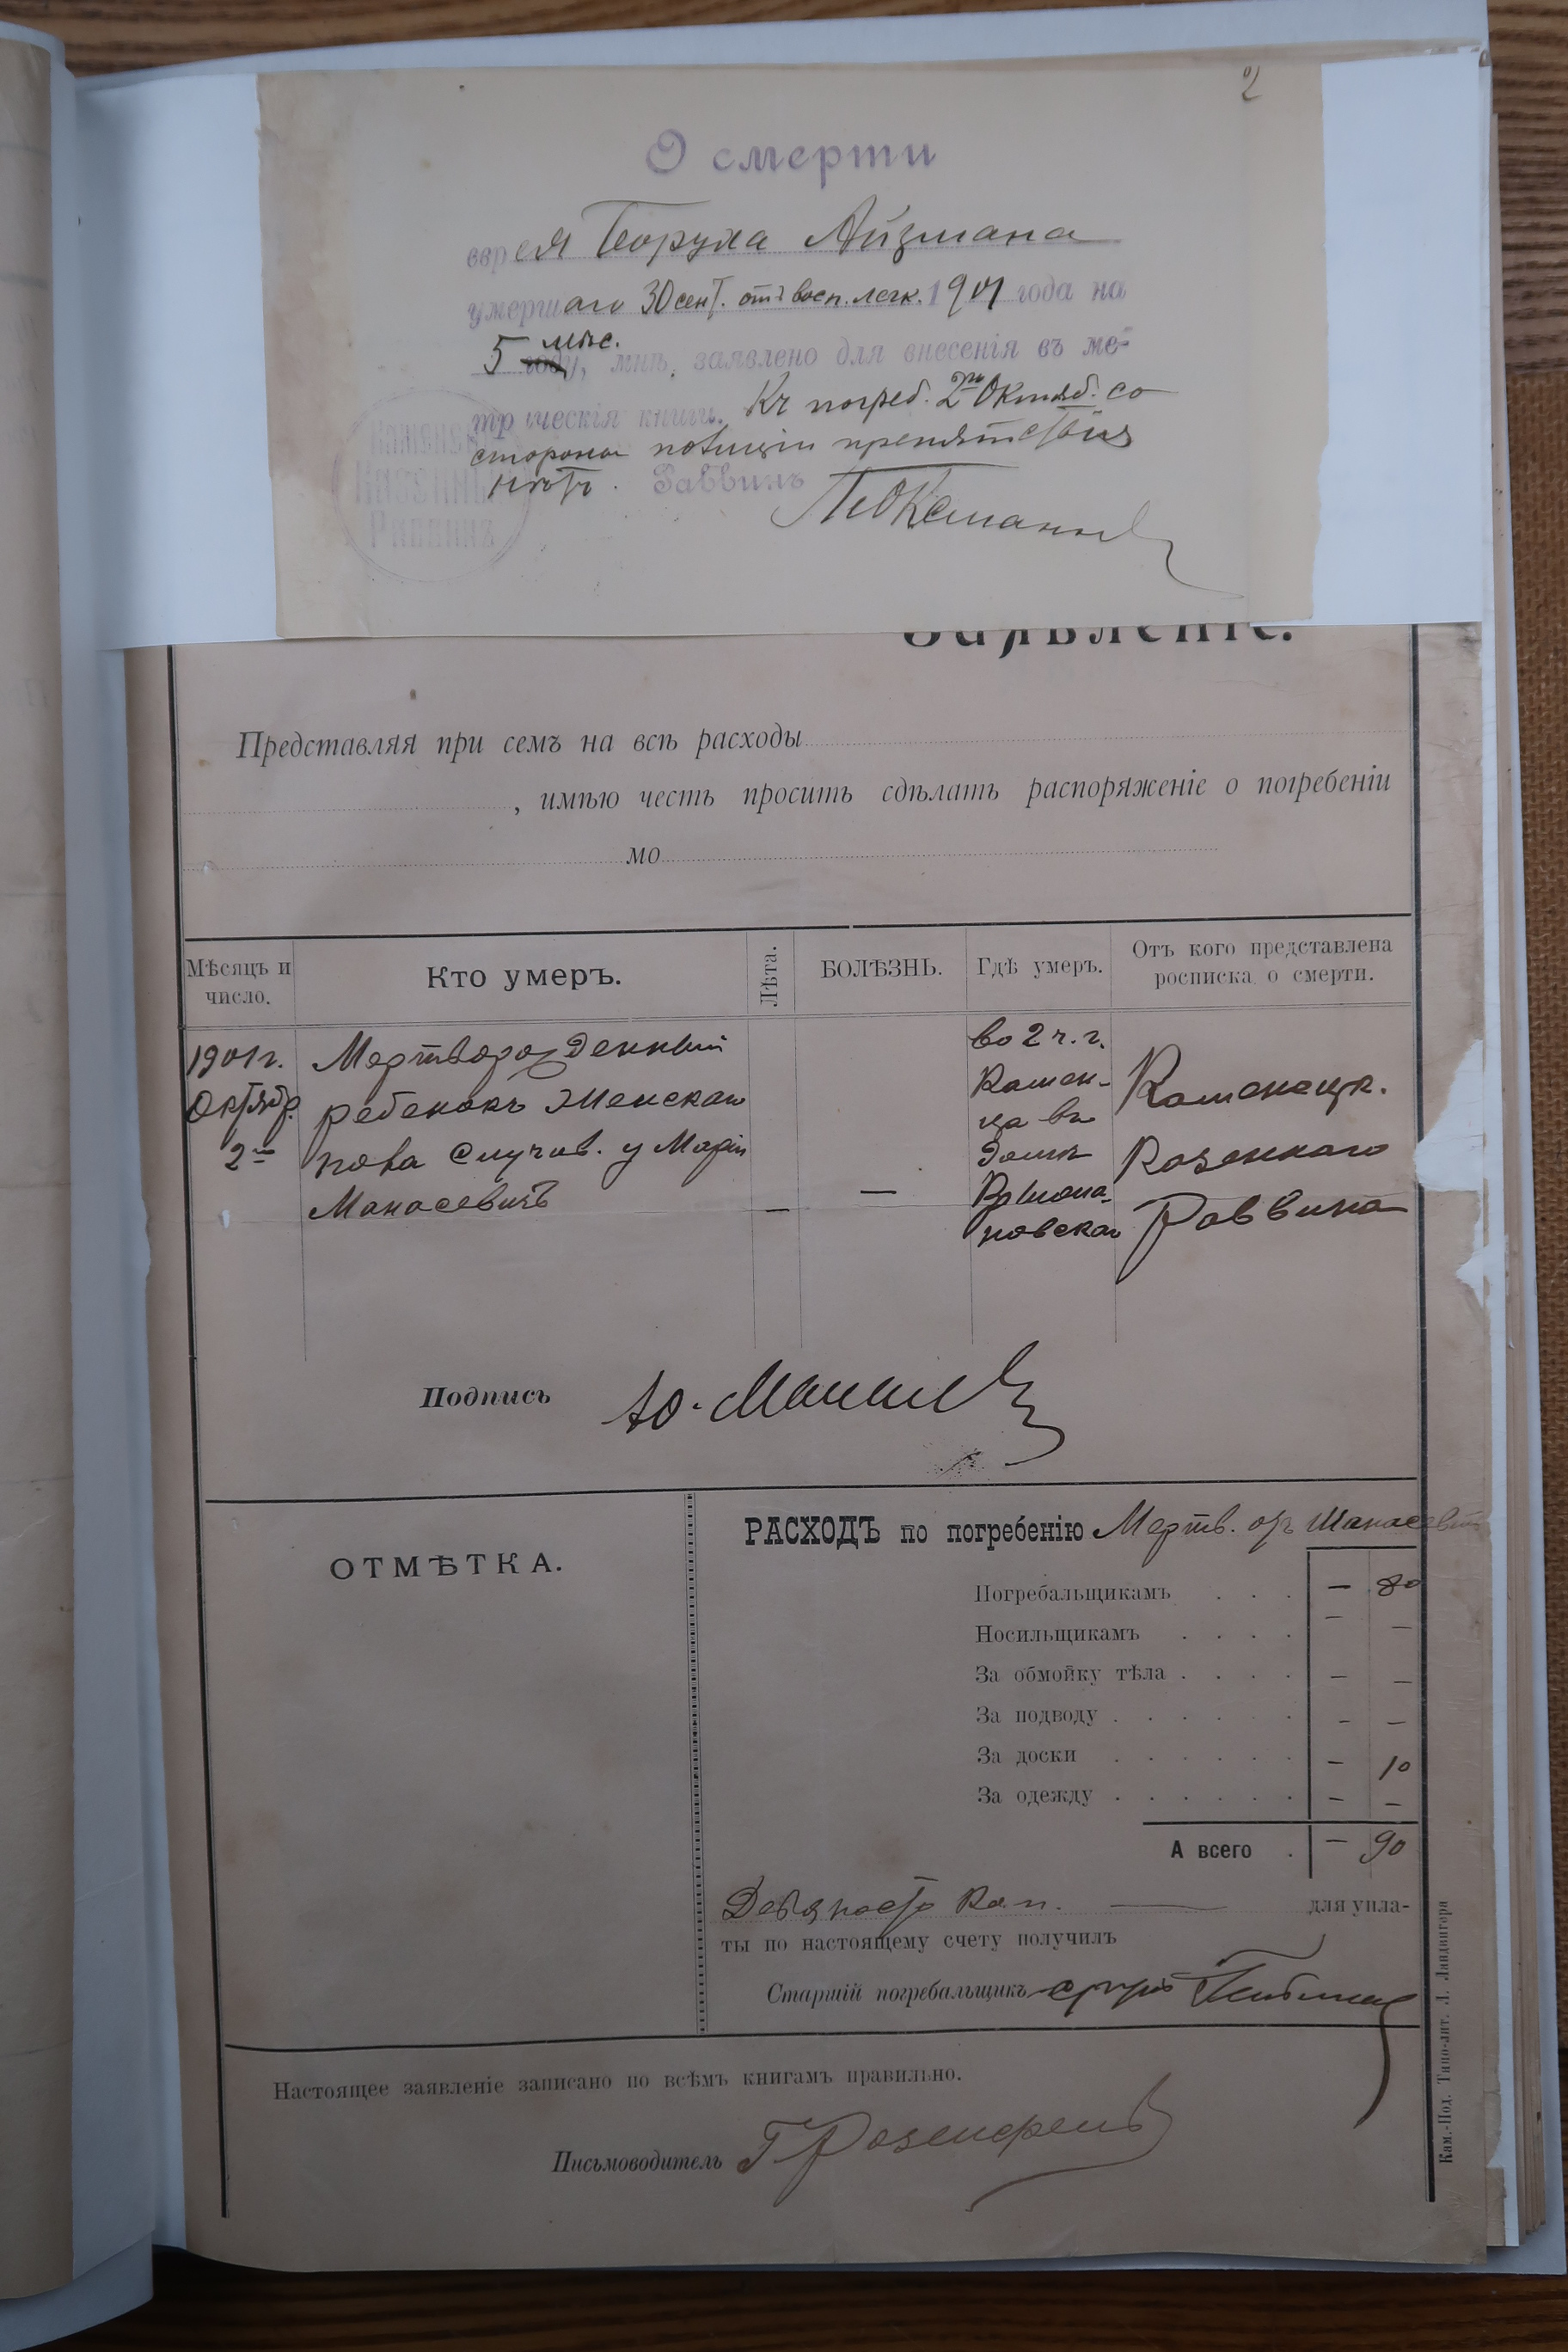 2
О смерти
еврея Боруха Айзмана
умершаго 30 сент. отъ восп. легк. 1901 года на
5 мѣс. году, мнѣ, заявлено для внесенія въ ме-
трическія книги. Къ погреб. 2го Октяб. со
стороны полиціи препятствія
нѣтъ. Раввинъ
Каменецк
Казенный
Раввинъ
Заявленіе.
Представляя при семъ на всѣ расходы
, имѣю честь просить сдѣлать распоряженіе о погребеніи
мо
Мѣсяцъ и число.
Кто умеръ.
Лѣта.
БОЛѢЗНЬ.
Гдѣ умеръ.
Отъ кого представлена росписка о смерти.
1901 г.
Октябр.
2го
Мертворожденный
ребенокъ женскаго
пола случив. у Маріи
Манасевичъ
—
—
во 2 ч. г.
Камен-
ца въ
домѣ
Каменецк.
Казеннаго
Раввина
Подпись
РАСХОДЪ по погребенію Мертв. отъ Манасевичъ
ОТМѢТКА.
Погребальщикамъ . . . — 80
Носильщикамъ . . . . — —
За обмойку тѣла . . . . — —
За подводу . . . . . . — —
За доски . . . . . . — 10
За одежду . . . . . . — —
А всего . — 90
Девяносто коп. — для упла-
ты по настоящему счету получилъ
Старшій погребальщикъ
Настоящее заявленіе записано по всѣмъ книгамъ правильно.
Письмоводитель Г Розенфельд
Кам.-Под. Типо-лит. Л. Ландвигера